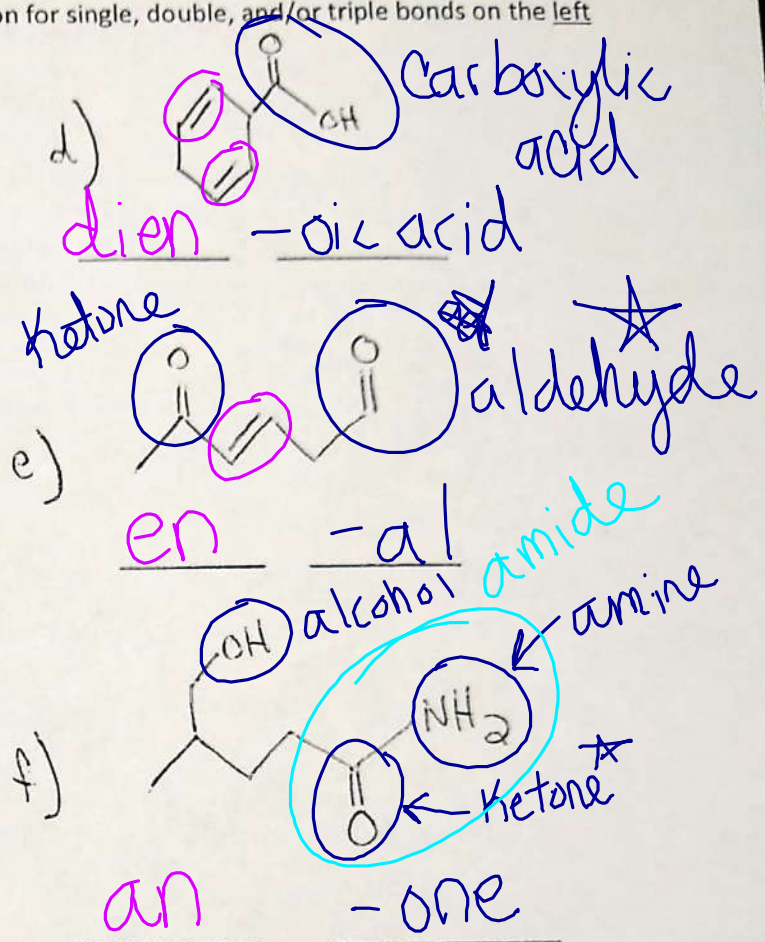 n for single, double, and/or triple bonds on the left
d)
O
OH
Carboxylic
acid
dien -oic acid
Ketone
O
O
aldehyde
e)
en -al
amide
OH alcohol
amine
NH2
f)
Ketone
O
an -one